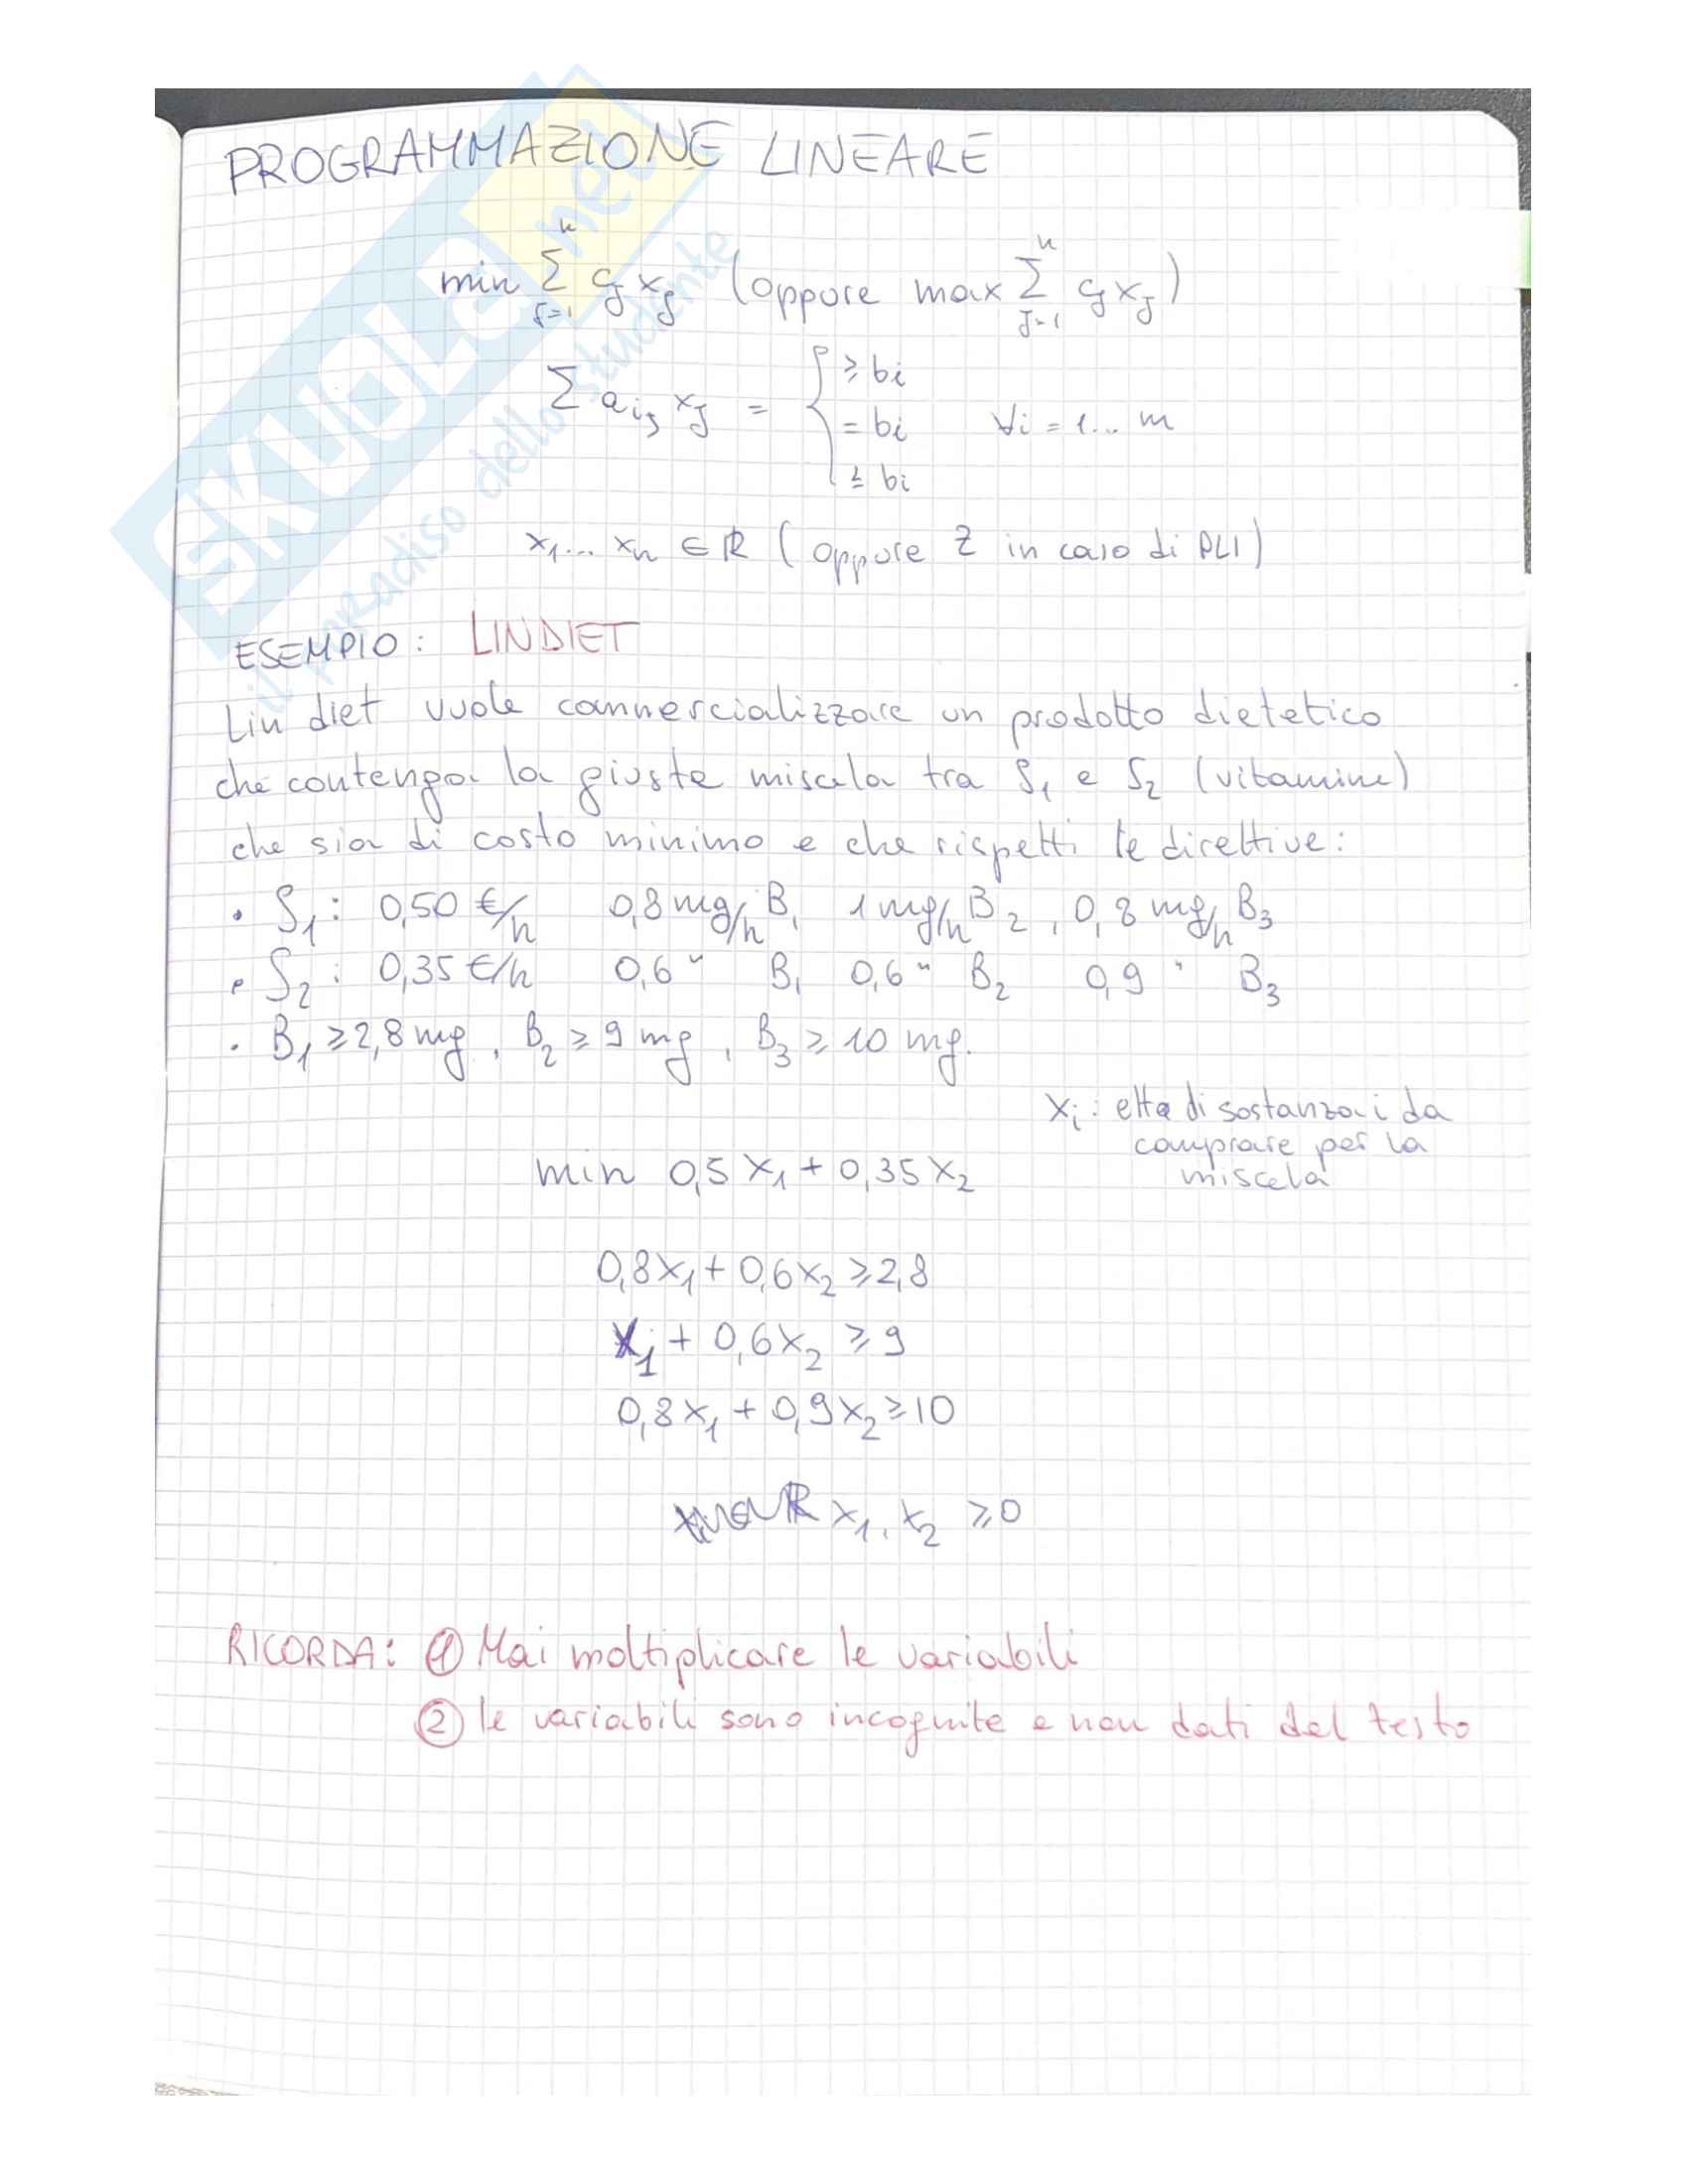 SKUOLA.net
il paradiso dello studente
PROGRAMMAZIONE LINEARE
min Σ_{j=1}^{n} cj xj (oppure max Σ_{j=1}^{n} cj xj)
Σ aij xj = { ≥ bi
= bi ∀i = 1... m
≤ bi
x1... xn ∈ ℝ ( oppure Z in caso di PLI )
ESEMPIO : LINDIET
Lin diet vuole commercializzare un prodotto dietetico
che contenga la giusta miscela tra S1 e S2 (vitamine)
che sia di costo minimo e che rispetti le direttive :
• S1 : 0,50 €/h 0,8 mg/h B1 1 mg/h B2 , 0,8 mg/h B3
• S2 : 0,35 €/h 0,6 " B1 0,6 " B2 0,9 " B3
• B1 ≥ 2,8 mg , B2 ≥ 9 mg , B3 ≥ 10 mg.
xi : etta di sostanza i da
comprare per la
miscela
min 0,5 x1 + 0,35 x2
0,8 x1 + 0,6 x2 ≥ 2,8
x1 + 0,6 x2 ≥ 9
0,8 x1 + 0,9 x2 ≥ 10
x1, x2 ≥ 0
RICORDA : ① Mai moltiplicare le variabili
② le variabili sono incognite e non dati del testo